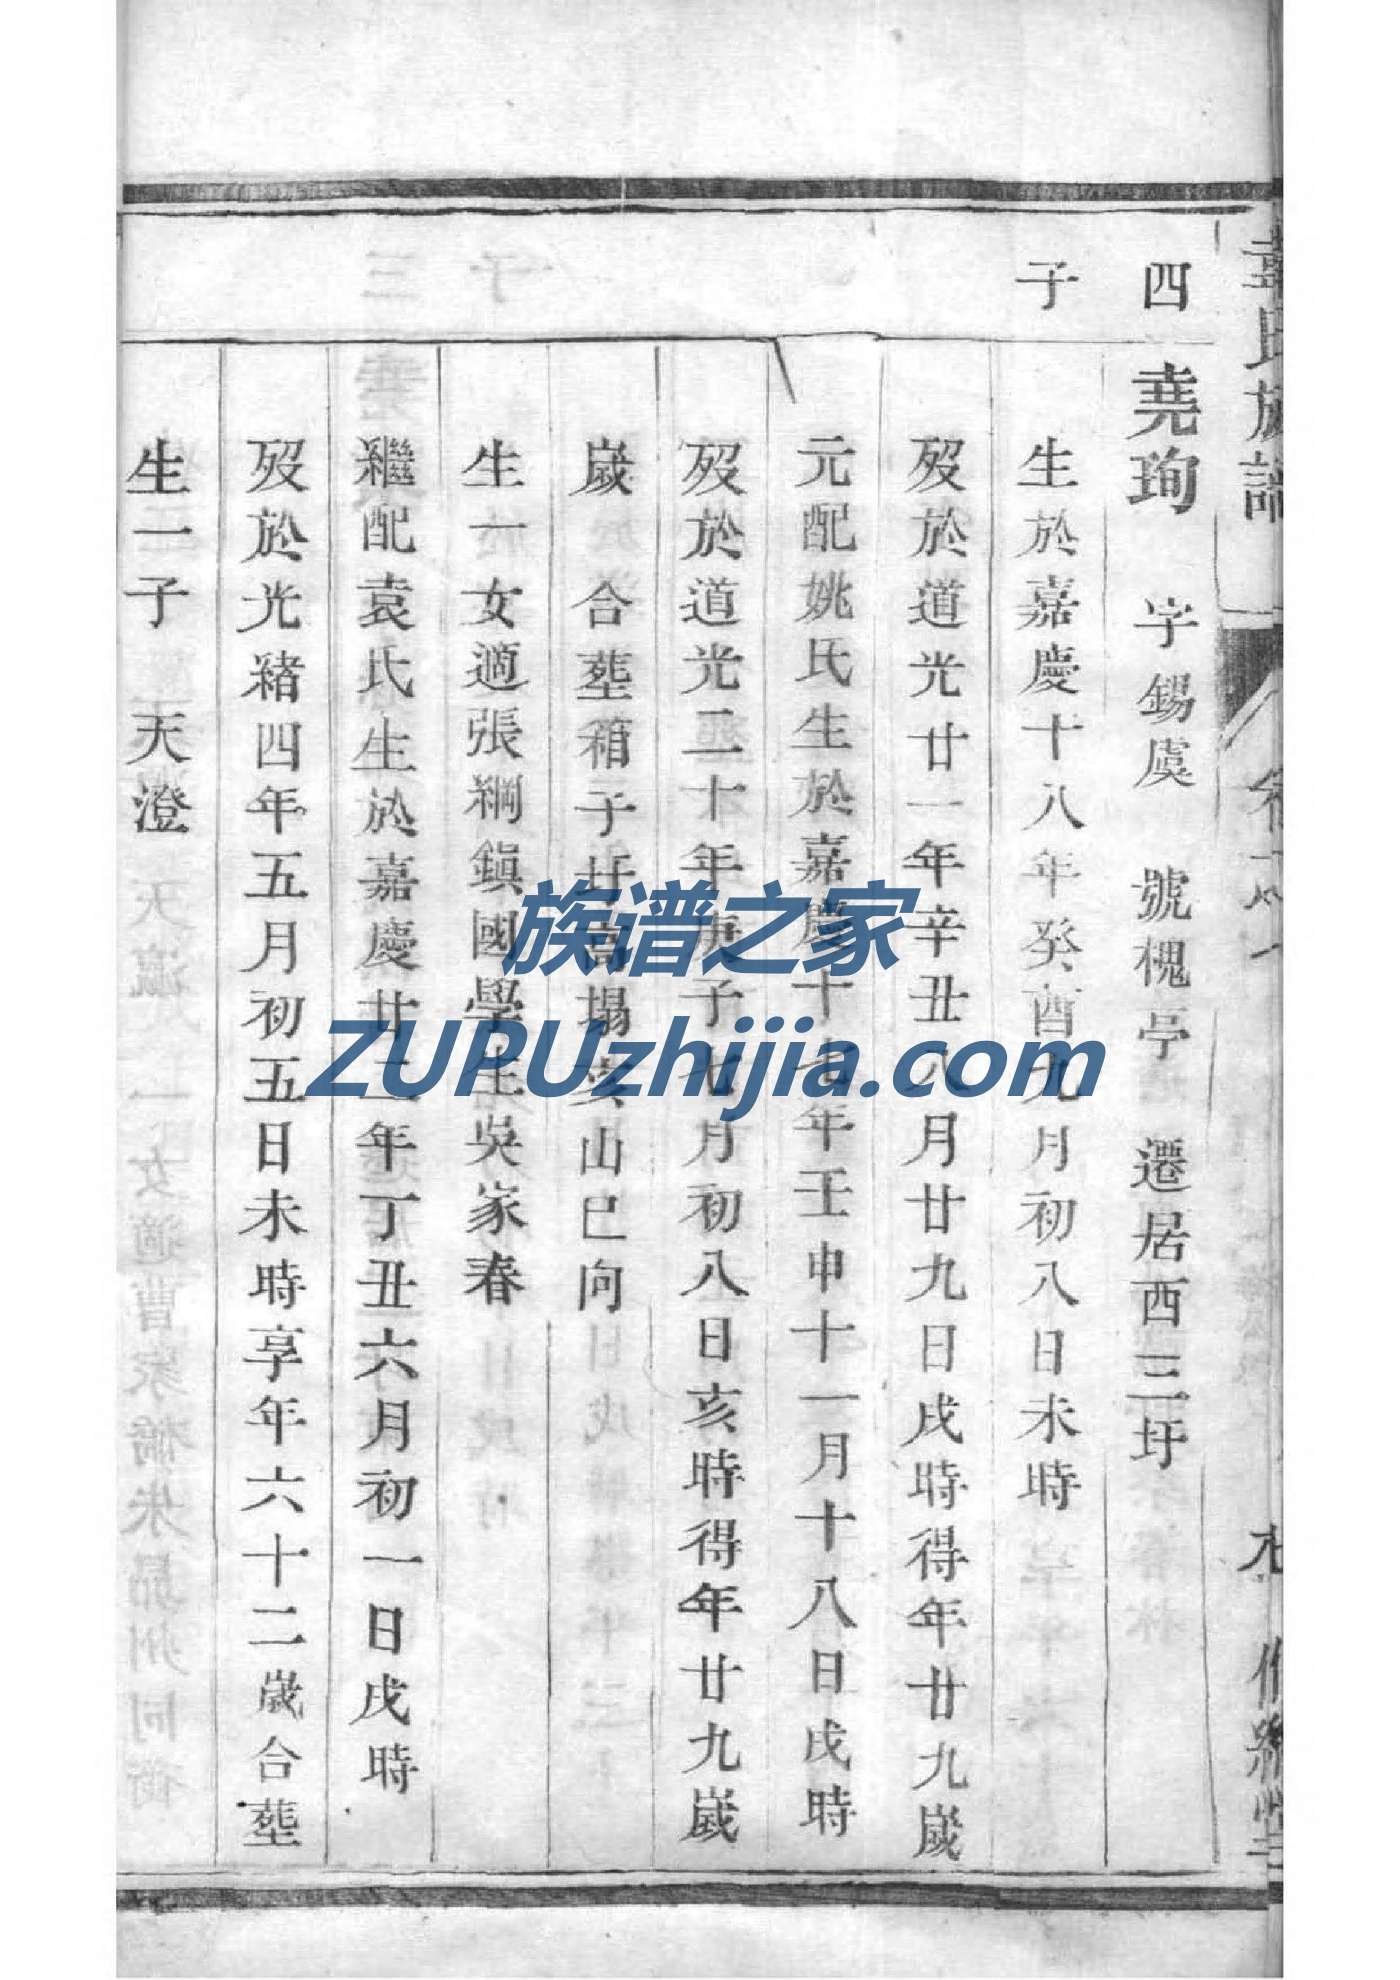 氏族譜
四子
堯珣 字錫虞 號槐亭 遷居西三圩
生於嘉慶十八年癸酉九月初八日未時
歿於道光廿一年辛丑八月廿九日戌時得年廿九歲
元配姚氏生於嘉慶十七年壬申十一月十八日戌時
歿於道光二十年庚子七月初八日亥時得年廿九歲
歲 合塟箱子圩高塌亥山巳向
生一女適張綱鎮國學生吳家春
繼配袁氏生於嘉慶廿二年丁丑六月初一日戌時
歿於光緒四年五月初五日未時享年六十二歲合塟
生一子 天澄
族谱之家
ZUPUzhijia.com